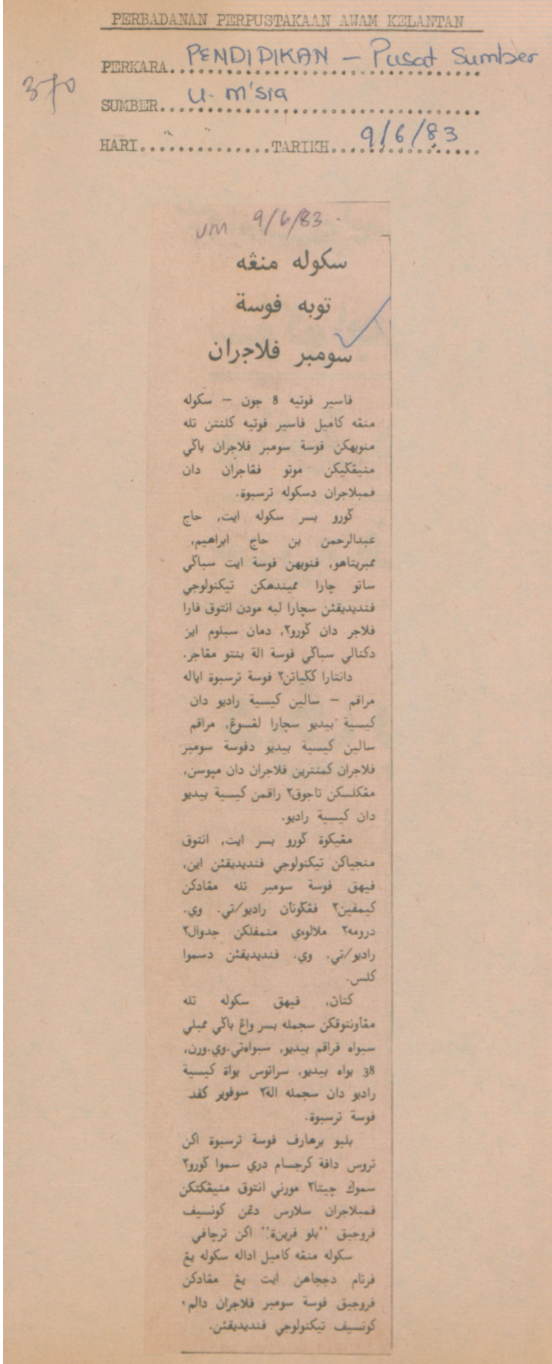 PERBADANAN PERPUSTAKAAN AWAM KELANTAN
PERKARA.. PENDIDIKAN – Pusat Sumber
370
SUMBER.. U. M'SIA
HARI..............TARIKH.... 9/6/83
UM 9/6/83.
سكوله منڠه
توبه ڤوسة
سومبر ڤلاجران
ڤاسير ڤوتيه 8 جون – سكوله
منڠه كاميل ڤاسير ڤوتيه كلنتن تله
منوبهكن ڤوسة سومبر ڤلاجران باݢي
منيڠكيكن موتو ڤڠاجران دان
ڤمبلاجران دسكوله ترسبوة.
ݢورو بسر سكوله ايت، حاج
عبدالرحمن بن حاج ابراهيم،
ممبريتاهو، ڤنوبهن ڤوسة ايت سباݢي
ساتو چارا ممبندهكن تيكنولوجي
ڤنديديقئن سچارا لبه مودن انتوق ڤارا
ڤلاجر دان ݢورو٢، دمان سبلوم اين
دكنالي سباݢي ڤوسة الة بنتو مڠاجر.
دانتارا كݢياتن٢ ڤوسة ترسبوة اياله
مراقم – سالين كيسية راديو دان
كيسية بيديو سچارا لڠسوڠ، مراقم
سالين كيسية بيديو دڤوسة سومبر
ڤلاجران كمنترين ڤلاجران دان مپوسن،
مڠكلسكن تاجوق٢ راقمن كيسية بيديو
دان كيسية راديو.
مڠيكوة ݢورو بسر ايت، انتوق
منجياكن تيكنولوجي ڤنديديقئن اين،
ڤيهق ڤوسة سومبر تله مڠادكن
كيمڤين٢ ڤڠݢونان راديو/تي. وي.
درومه٢ ملالوءي منمڤلكن جدوال٢
راديو/تي. وي. ڤنديديقئن دسموا
كلس.
كتاڽ، ڤيهق سكوله تله
مڠاونتوقكن سجمله بسر واڠ باݢي ممبلي
سبواه ڤراقم بيديو، سبواه تي.وي.ورن،
38 بواه بيديو، سراتوس بواة كيسية
راديو دان سجمله الة٢ سوڤوير كڤد
ڤوسة ترسبوة.
بلياو برهارڤ ڤوسة ترسبوة اكن
تروس داڤة كرجسام دري سموا ݢورو٢
سموݢ چيتا٢ مورني انتوق منيڠكتكن
ڤمبلاجران سلارس دڠن كونسيڤ
ڤروجيق "بلو ڤرينة" اكن ترچاڤي
سكوله منڠه كاميل اداله سكوله يڠ
ڤرتام دججاهن ايت يڠ مڠادكن
ڤروجيق ڤوسة سومبر ڤلاجران دالم
كونسيڤ تيكنولوجي ڤنديديقئن.